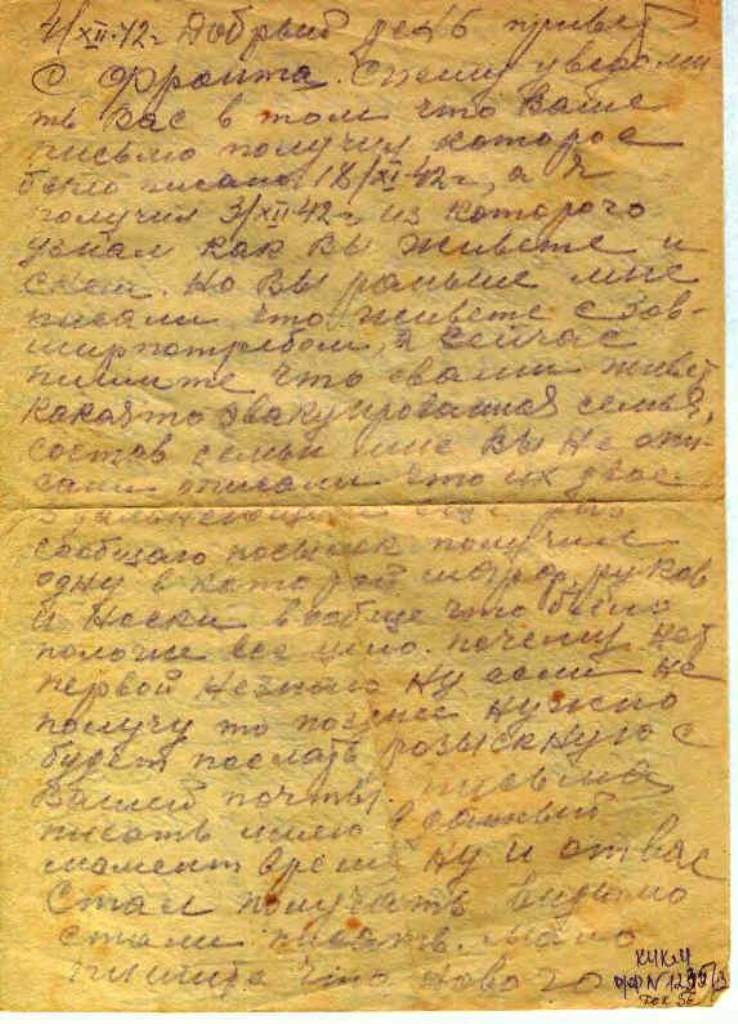 4/XII-42 г Добрый день привет
с фронта. Спешу уведоми
ть вас в том что Ваше
письмо получил которое
было писано 18/XI-42 г, а я
получил 3/XII 42 г, из которого
узнал как Вы живете и
. Но Вы раньше мне
писали что живете с Зов-
ширпотребом, а сейчас
пишите что с вами живет
какаято эвакуированная семья,
состав семьи мне Вы не опи-
сали писали что их двое.
В дальнейшем
сообщаю посылок получил
одну в которой руков
и носки вообще что было
положе все цело. почему нет
первой незнаю ну если не
получу то позднее нужно
будет послать розыскную с
Вашей почты. письма
писать имею в данный
момент время ну и от вас
Стал получать видимо
стали писать. Мало
пишите что нового
КИКМ